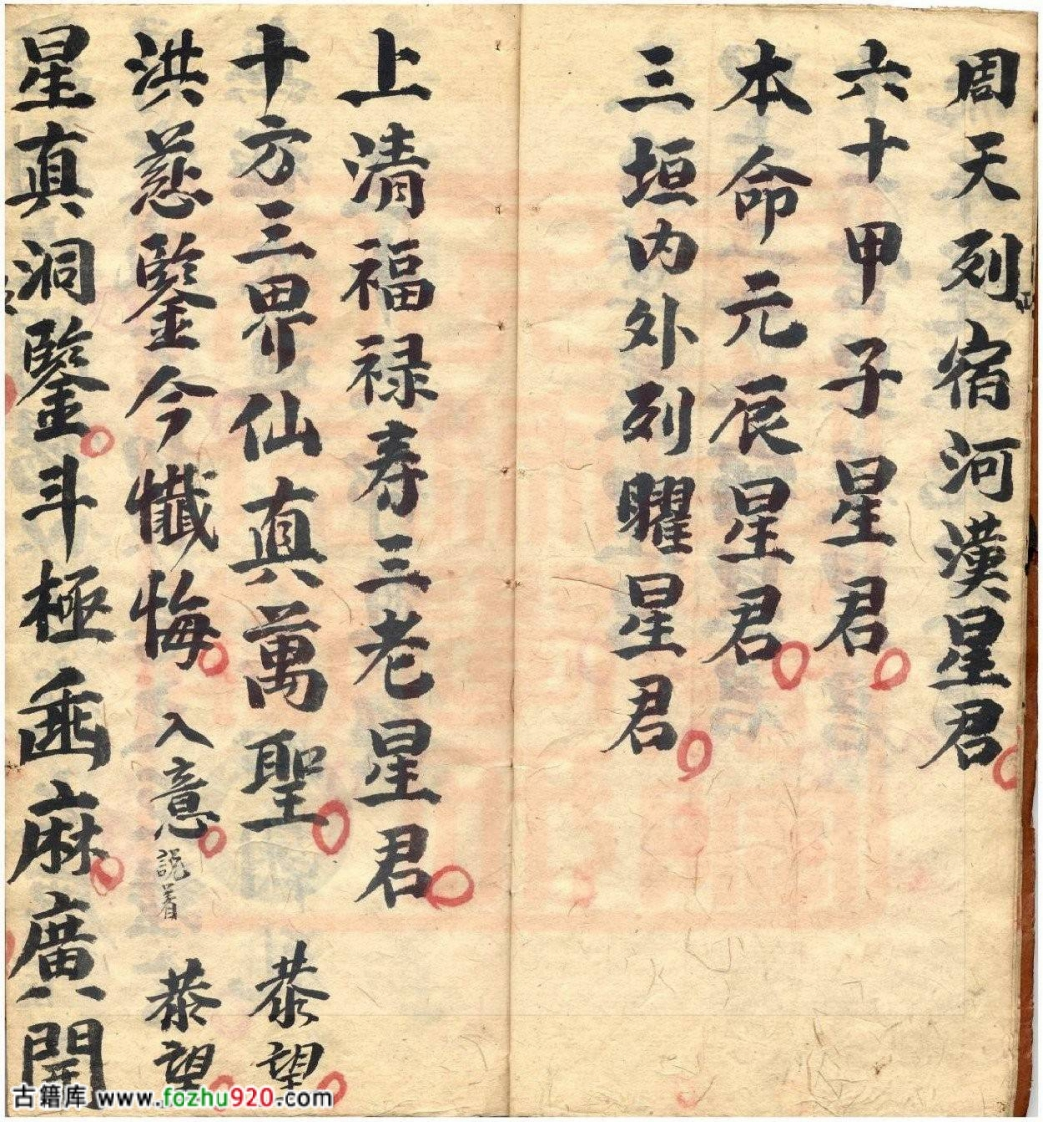 周天列宿河漢星君
六十甲子星君
本命元辰星君
三垣内外列曜星君
上清福禄寿三老星君
十方三界仙真萬聖 恭望
洪慈鑒今懺悔 入意 説着 恭望
星真洞鑒斗極垂麻廣開
古籍库 www.fozhu920.com